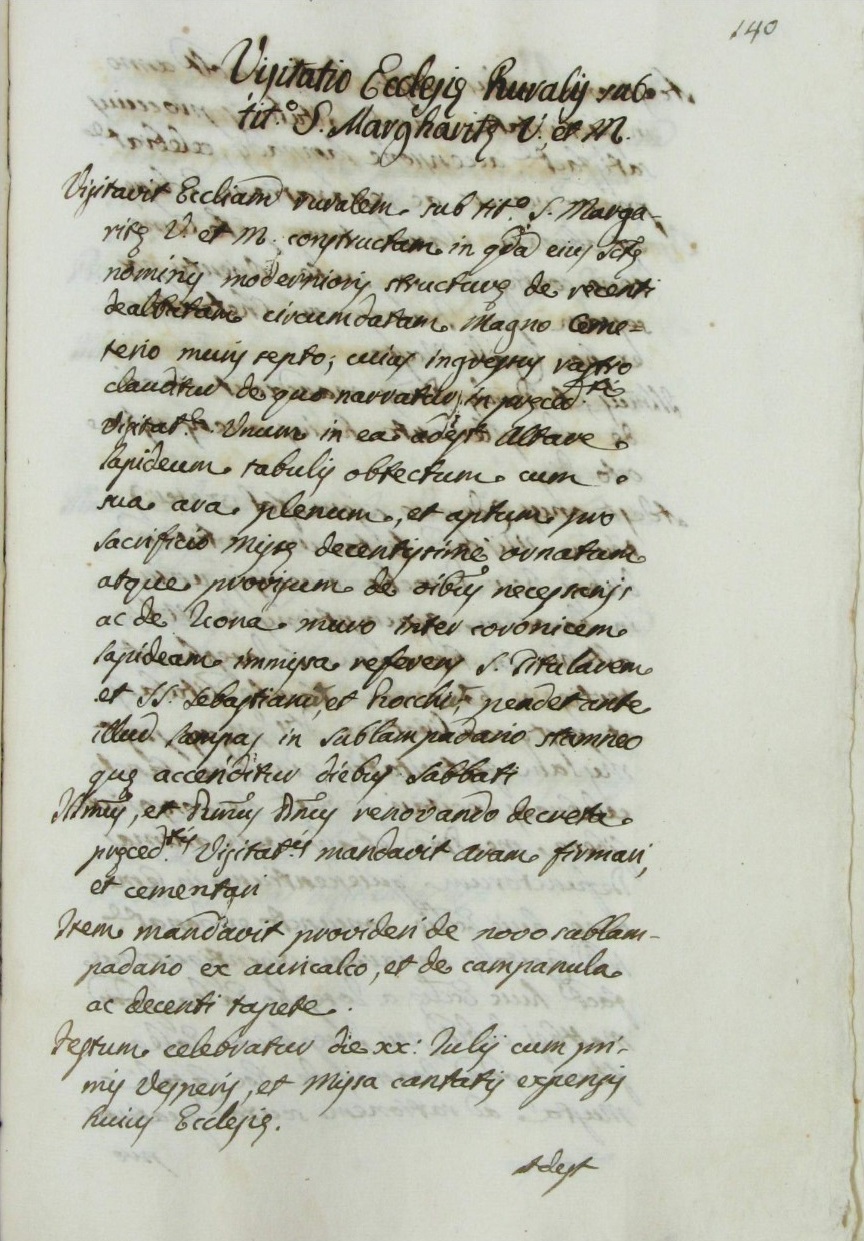 140
Visitatio Ecclesię Ruralis sub
tit.º S. Margharitę V. et M.
Visitavit Eccliam ruralem sub tit.º S. Marga-
ritę V. et M. constructam in qda eius Sctę
nominis modernioris structurę de recenti
dealbatam circumdatam Magno Ceme-
terio muris septo; cuius ingressus rastro
clauditur de quo narratur in pręced.te
Visitat.e Unum in ea adest Altare
lapideum tabulis obtectum cum
sua ara plenum, et aptum pro
sacrificio Missę decentissimè ornatum
atque provisum de oibus necessarijs
ac de Icona muro inter coronicem
lapideam immissa referens S. Titularem
et SS. Sebastianu, et Rocchu; pendet ante
illud lampas in sublampadario stamneo
quę accenditur diebus Sabbati
Illmus, et Rmus Dnus renovando decreta
pręced.tis Visitat.is mandavit aram firmari,
et cementari
Item mandavit provideri de novo sublam-
padario ex auricalco, et de campanula
ac decenti tapete.
Festum celebratur die xx: Iulij cum pri-
mis Vesperis, et Missa cantatis expensis
huius Ecclesię.
Adest